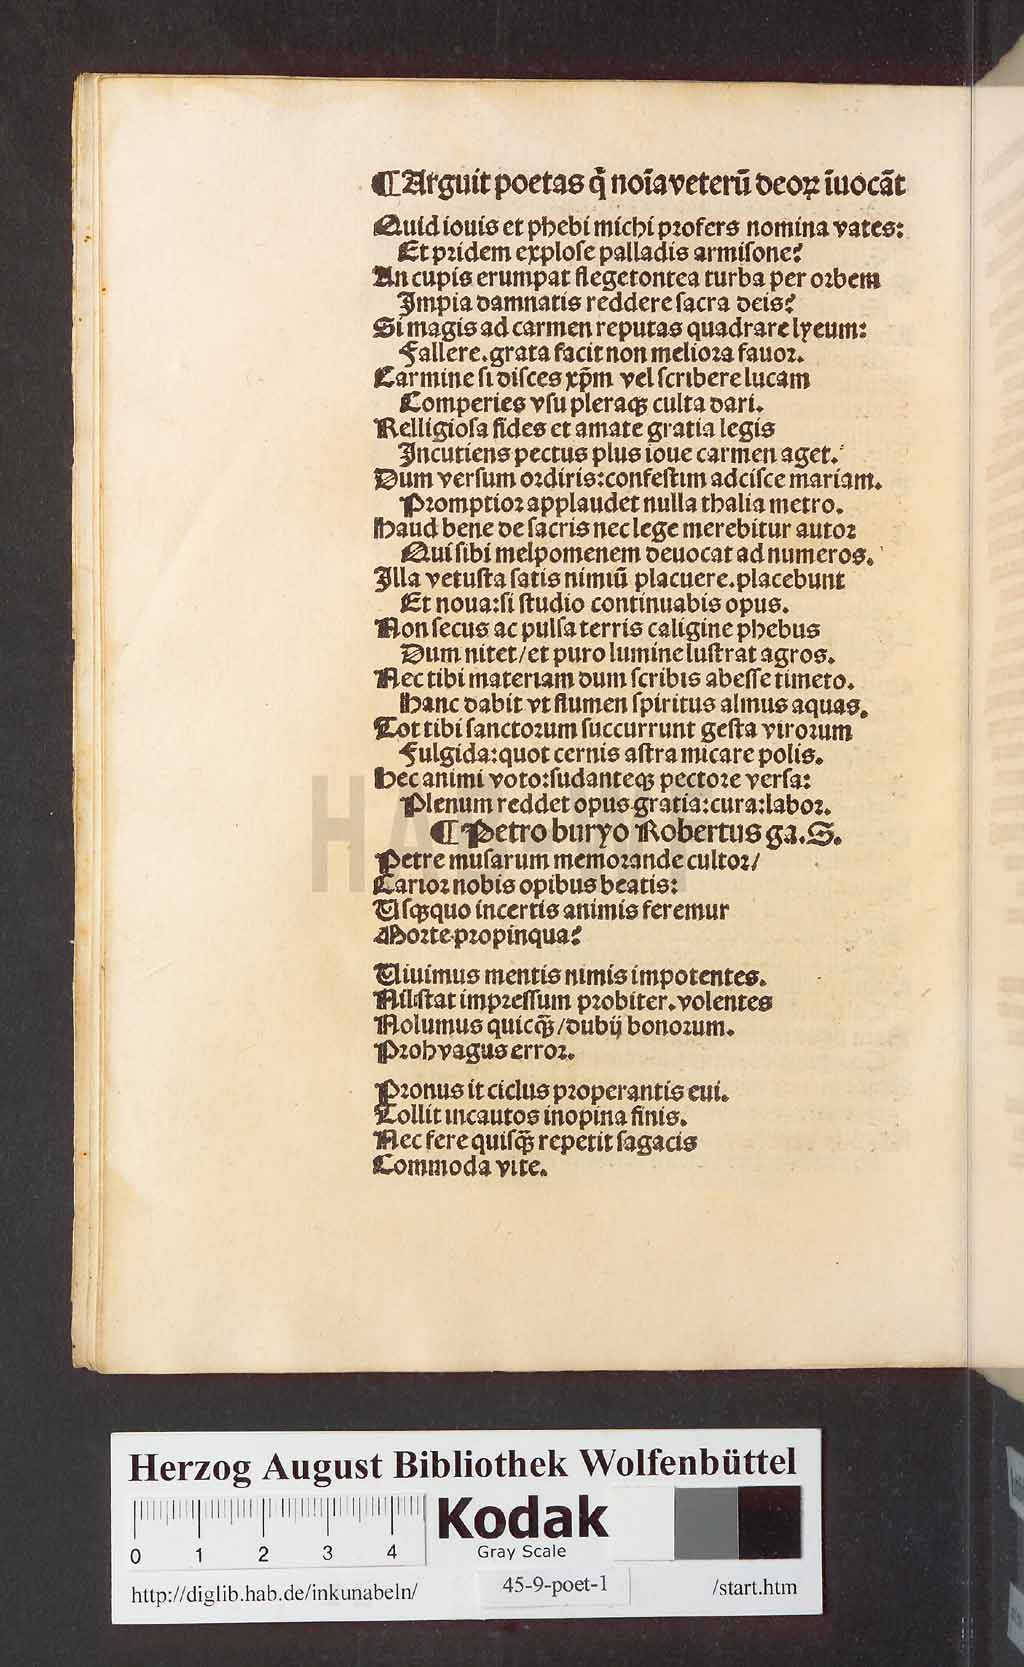 ¶ Arguit poetas q̃ noı̄a veterū deoꝝ ı̄uocāt
Quid iouis et phebi michi profers nomina vates:
Et pridem explose palladis armisone?
An cupis erumpat flegetontea turba per orbem
Impia damnatis reddere sacra deis?
Si magis ad carmen reputas quadrare lyeum:
Fallere. grata facit non meliora fauor.
Carmine si disces xp̄m vel scribere lucam
Comperies vsu pleraqꝫ culta dari.
Relligiosa fides et amate gratia legis
Incutiens pectus plus ioue carmen aget.
Dum versum ordiris: confestim adcisce mariam.
Promptior applaudet nulla thalia metro.
Haud bene de sacris nec lege merebitur autor
Qui sibi melpomenem deuocat ad numeros.
Illa vetusta satis nimiū placuere. placebunt
Et noua: si studio continuabis opus.
Non secus ac pulsa terris caligine phebus
Dum nitet/ et puro lumine lustrat agros.
Nec tibi materiam dum scribis abesse timeto.
Hanc dabit vt flumen spiritus almus aquas.
Tot tibi sanctorum succurrunt gesta virorum
Fulgida: quot cernis astra micare polis.
Hec animi voto: sudanteqꝫ pectore versa:
Plenum reddet opus gratia: cura: labor.
¶ Petro buryo Robertus ga. S.
Petre musarum memorande cultor/
Carior nobis opibus beatis:
Usqꝫquo incertis animis feremur
Morte propinqua?
Uiuimus mentis nimis impotentes.
Nil stat impressum probiter. volentes
Nolumus quicq̃ꝫ/ dubij bonorum.
Proh vagus error.
Pronus it ciclus properantis eui.
Tollit incautos inopina finis.
Nec fere quisq̃ꝫ repetit sagacis
Commoda vite.
HAB
Herzog August Bibliothek Wolfenbüttel
0 1 2 3 4
Kodak
Gray Scale
http://diglib.hab.de/inkunabeln/
45-9-poet-1
/start.htm